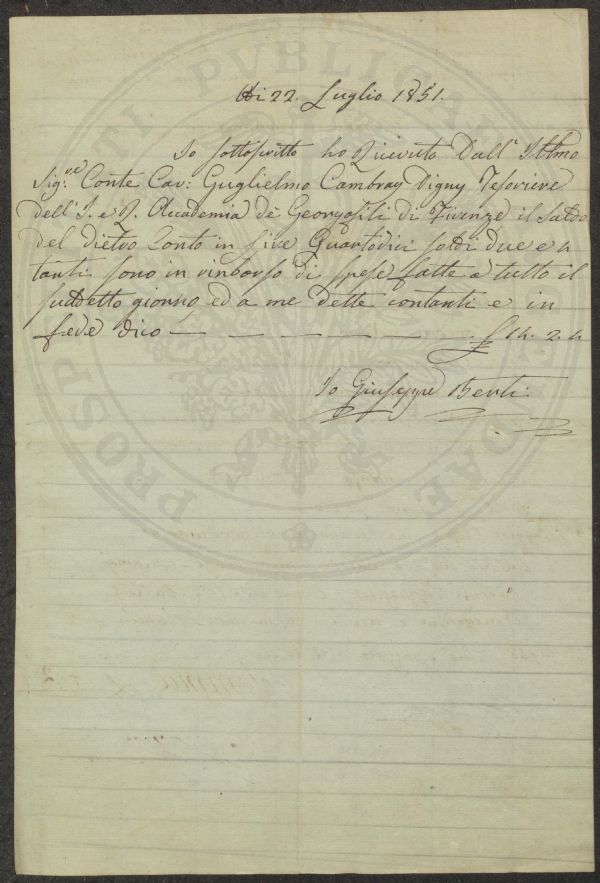 Adi 22. Luglio 1851.
Io Sottoscritto ho Ricevuto Dall' Ill.mo
Sig.re Conte Cav: Guglielmo Cambray Digny Tesoriere
dell' I. e R. Accademia dè Georgofili di Firenze il Saldo
del dietro Conto in Lire Quartodici soldi due e
tanti sono in rinborso di spese fatte a tutto il
suddetto giorno ed a me dette contanti e in
fede dico — — — — — — £ 14. 2. 4
Io Giuseppe Berti
PROSPERITATI PUBLICAE AUGENDAE